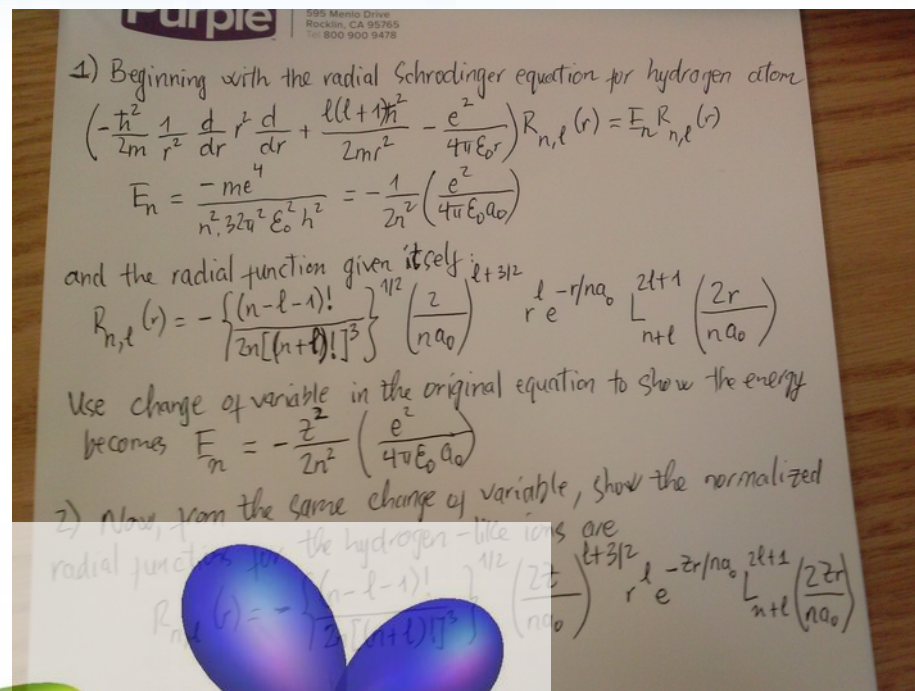 Purple
595 Menlo Drive
Rocklin, CA 95765
Tel 800 900 9478
1) Beginning with the radial Schrodinger equation for hydrogen atom
(-ħ²/2m 1/r² d/dr r² d/dr + l(l+1)ħ²/2mr² - e²/4πε₀r) R_{n,l}(r) = E_n R_{n,l}(r)
E_n = -me⁴/n².32π²ε₀²ħ² = -1/2n² (e²/4πε₀a₀)
and the radial function given itself:
R_{n,l}(r) = -{(n-l-1)!/2n[(n+l)!]³}^{1/2} (2/na₀)^{l+3/2} r^l e^{-r/na₀} L_{n+l}^{2l+1} (2r/na₀)
Use change of variable in the original equation to show the energy
becomes E_n = -z²/2n² (e²/4πε₀a₀)
2) Now, from the same change of variable, show the normalized
radial functions for the hydrogen-like ions are
R_{n,l}(r) = -{(n-l-1)!/2n[(n+l)!]³}^{1/2} (2Z/na₀)^{l+3/2} r^l e^{-Zr/na₀} L_{n+l}^{2l+1} (2Zr/na₀)